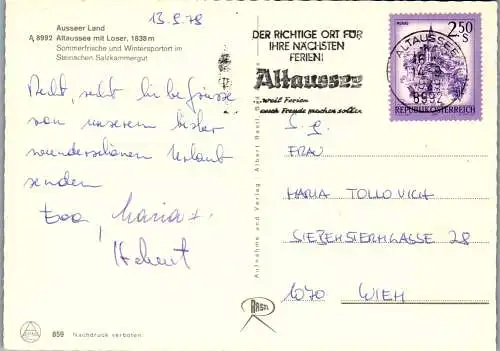 13.9.78
Ausseer Land
A 8992 Altaussee mit Loser, 1838 m
Sommerfrische und Wintersportort im
Steirischen Salzkammergut
DER RICHTIGE ORT FÜR
IHRE NÄCHSTEN
FERIEN!
Altaussee
..weil Ferien
auch Freude machen sollen
ALTAUSSEE
8992
2.50
S
REPUBLIK ÖSTERREICH
Recht, recht liebe Grüsse
von unserem bisher
wunderschönen Urlaub
senden
Eva, Maria +
Hubert
S. g.
FRAU
MARIA TOLLOVICH
SIEBENSTERNGASSE 28
1070 WIEN
Aufnahme und Verlag Albert Rastl,
RASTL
859 Nachdruck verboten.